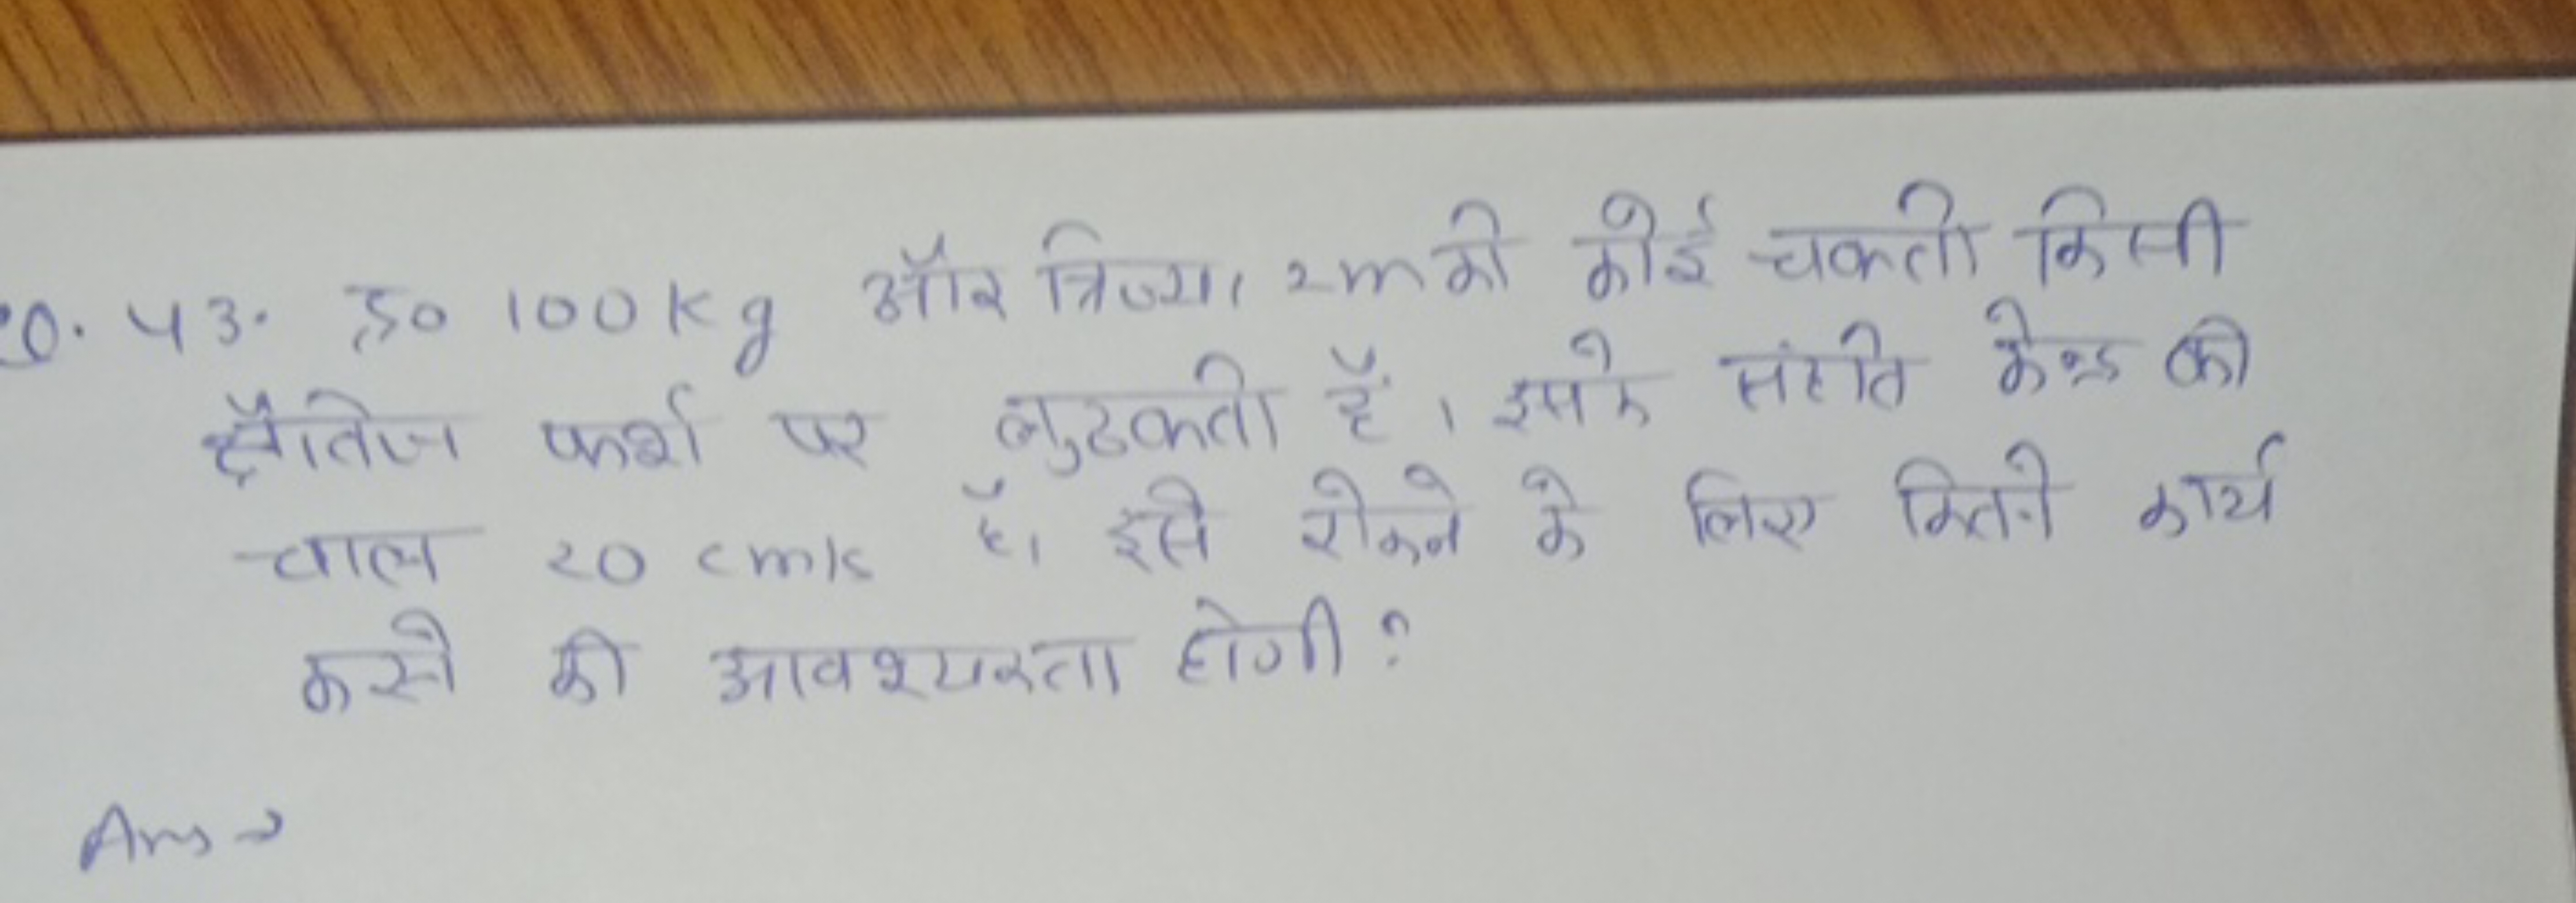 Q. 43. द्र० 100kg और त्रिज्या 2m की कोई चकती किसी
क्षैतिज फर्श पर लुढकती है। इसके संहति केन्द्र की
चाल 20 cm/s है। इसे रोकने के लिए कितने कार्य
करने की आवश्यकता होगी?
Ans →